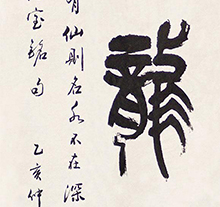 龍
有仙則名水不在深
室銘句
乙亥仲